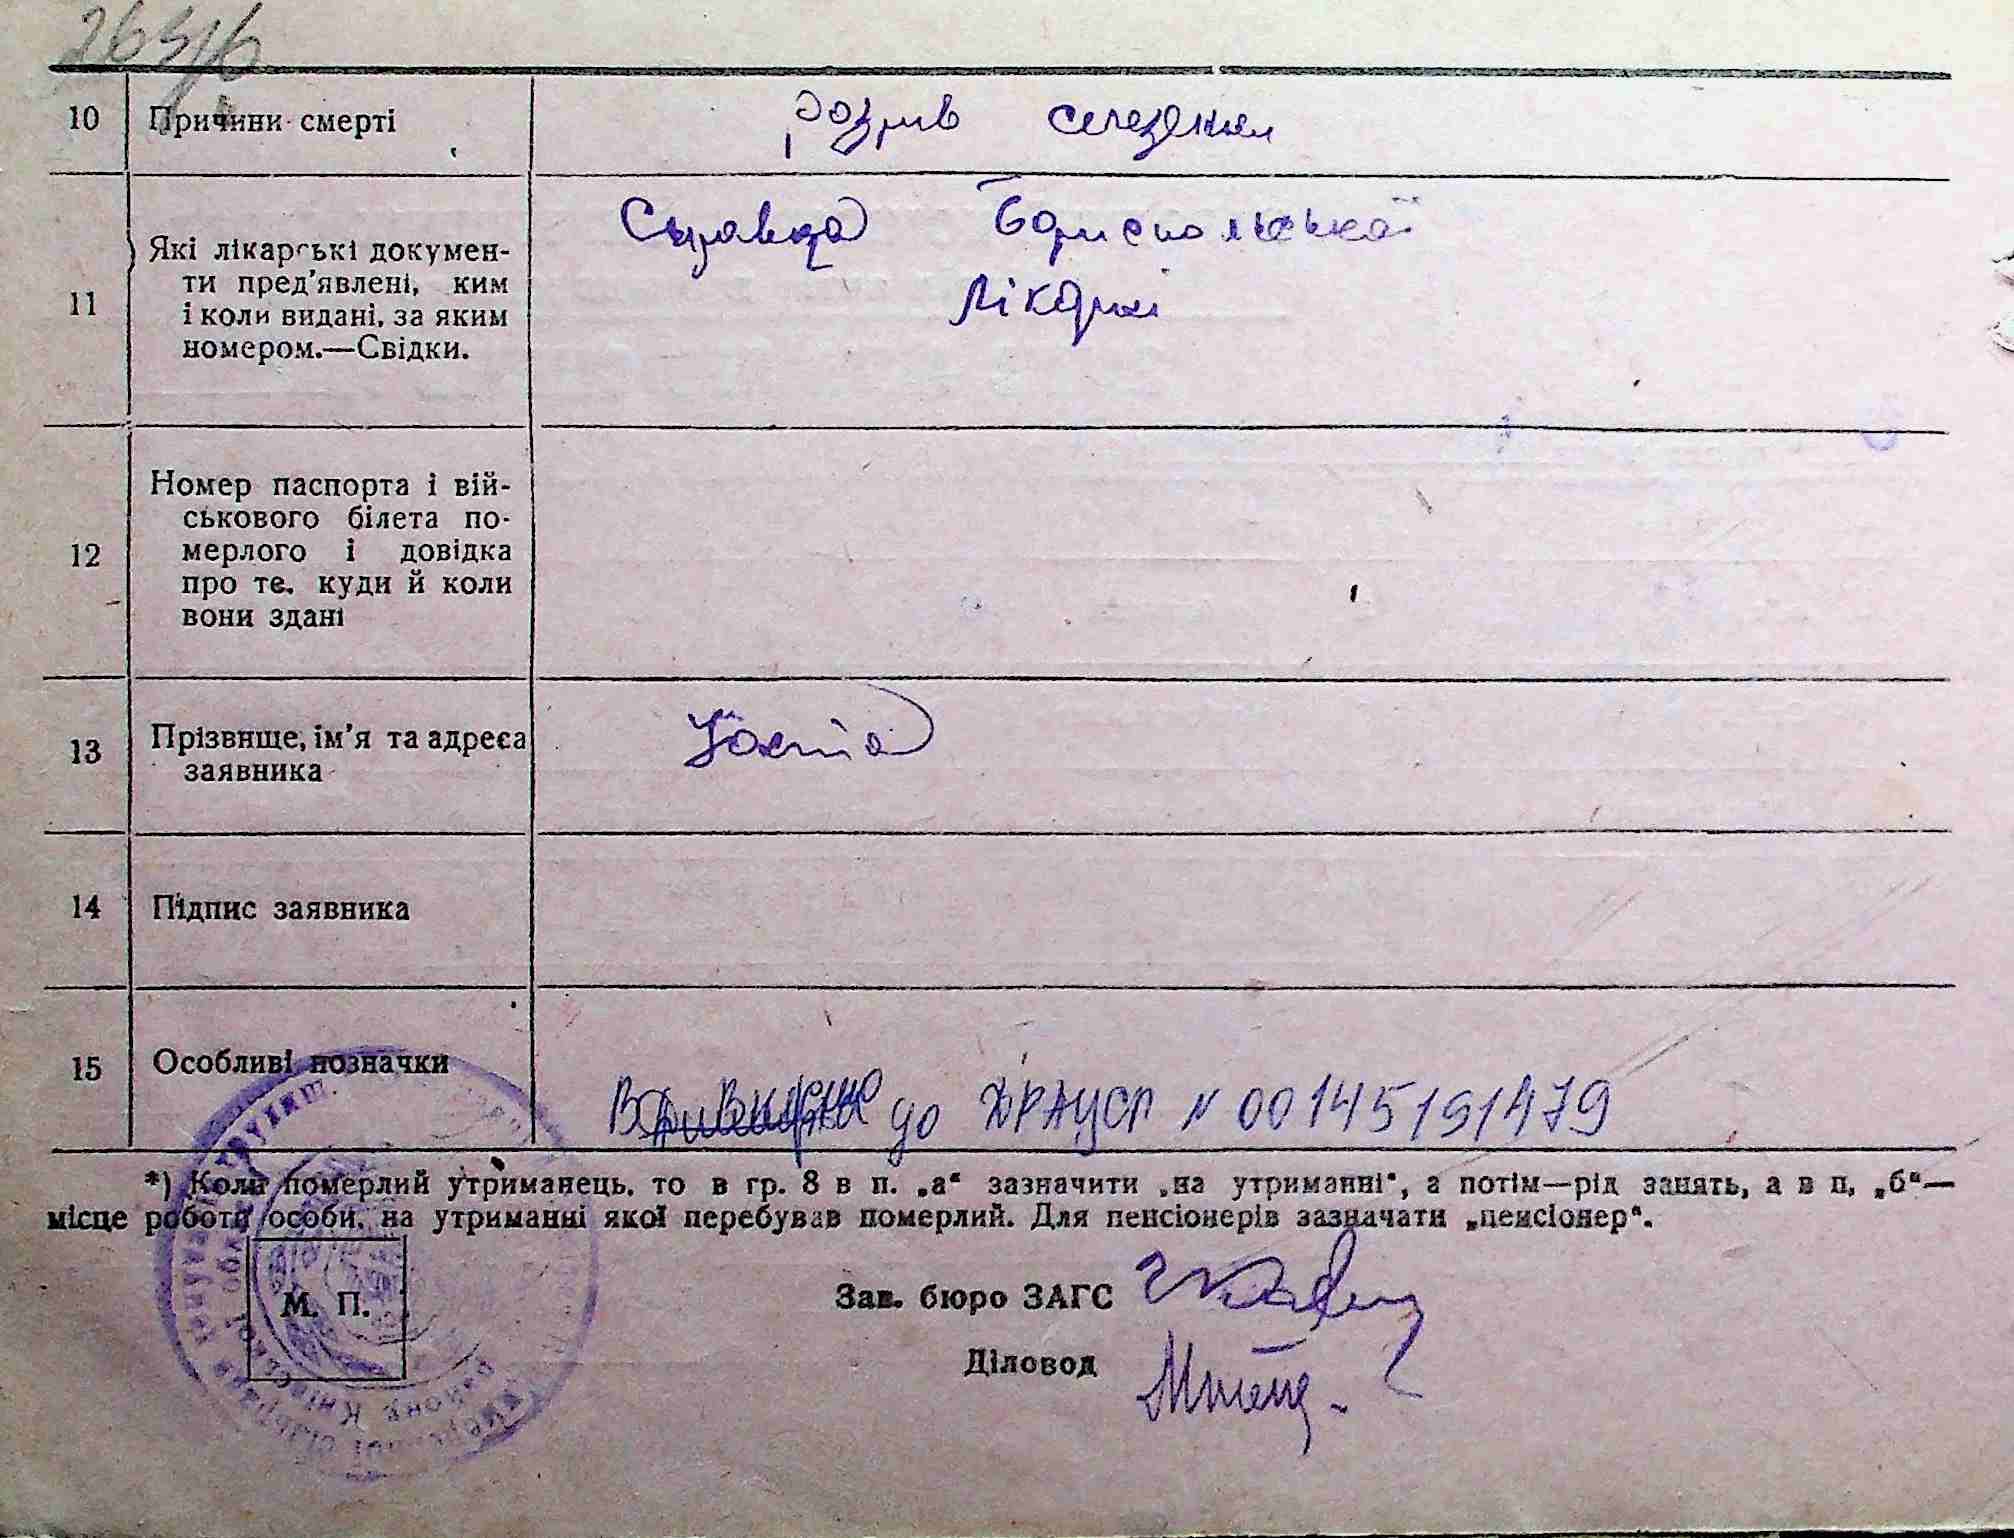 263/6
10 Причини смерті розрив селезінки
11 Які лікарські докумен-
ти пред'явлені, ким
і коли видані, за яким
номером.—Свідки.
Справка Бориспольської
лікарні
12 Номер паспорта і вій-
ськового білета по-
мерлого і довідка
про те, куди й коли
вони здані
13 Прізвище, ім'я та адреса
заявника
14 Підпис заявника
15 Особливі позначки
до ДРАЦСГ N 00145191479
*) Коли померлий утриманець, то в гр. 8 в п. „а“ зазначити „на утриманні“, а потім—рід занять, а в п. „б“—
місце роботи особи, на утриманні якої перебував померлий. Для пенсіонерів зазначати „пенсіонер“.
М. П.
Зав. бюро ЗАГС
Діловод